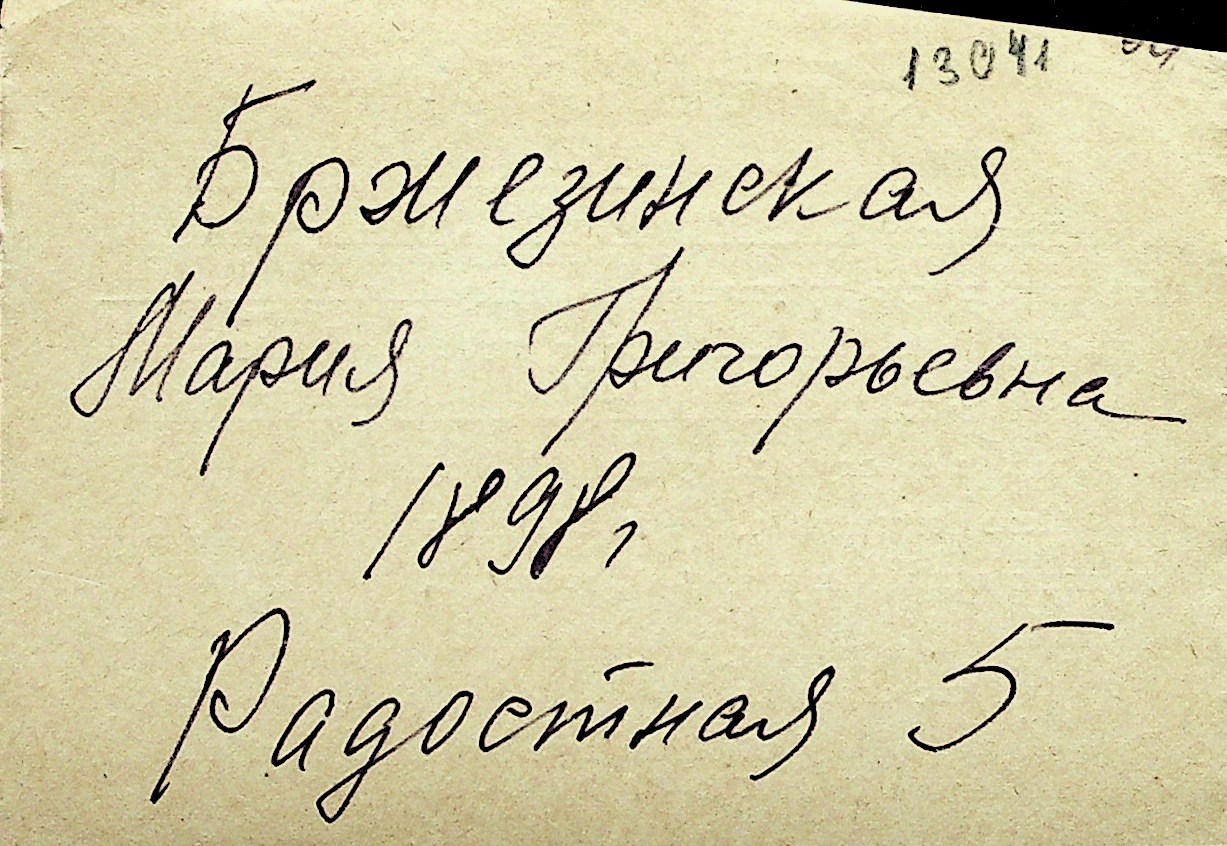 13041
Бржезинская
Мария Григорьевна
1898г
Радостная 5